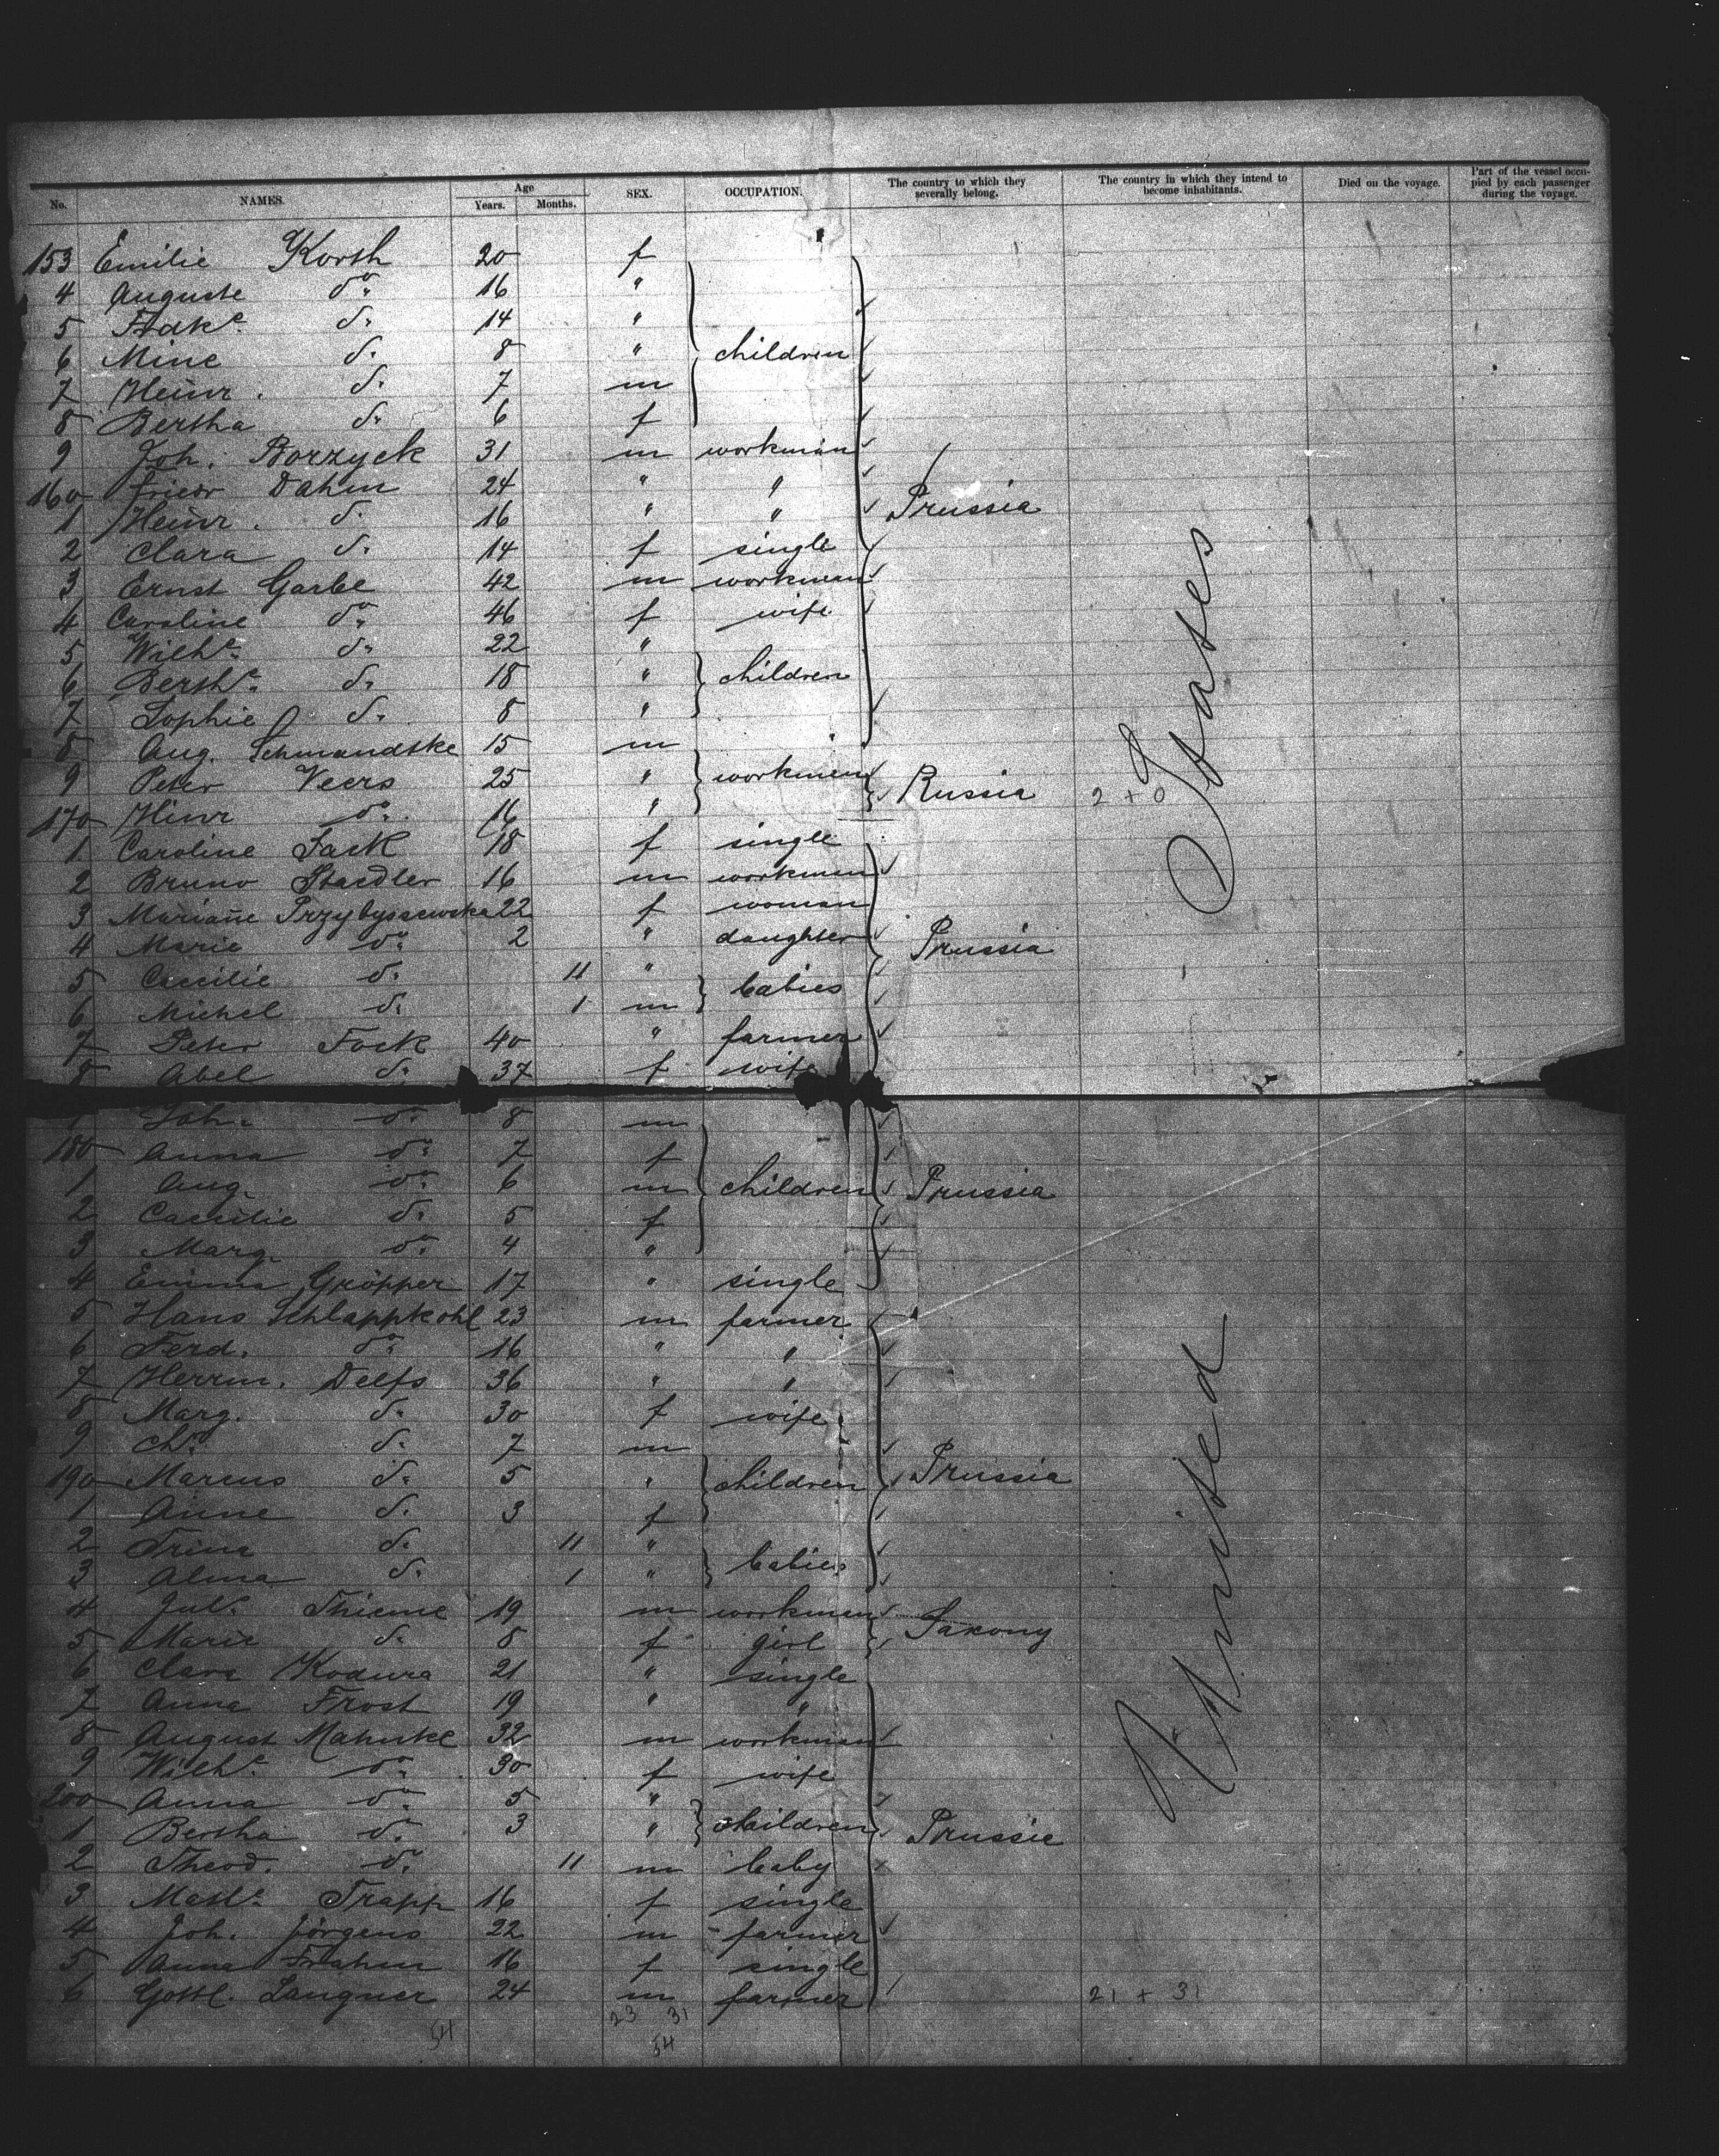 No. NAMES. Age Years. Months. SEX. OCCUPATION. The country to which they severally belong. The country in which they intend to become inhabitants. Died on the voyage. Part of the vessel occupied by each passenger during the voyage.
153 Emilie Korth 20 f
4 Auguste do 16 "
5 Fradke do 14 "
6 Mine do 8 " children
7 Heinr. do 7 m
8 Bertha do 6 f
9 Joh. Borzyck 31 m workman
160 Friedr Dahm 24 " " Prussia
1 Heinr. do 16 " "
2 Clara do 14 f single
3 Ernst Garbe 42 m workman
4 Caroline do 46 f wife
5 Wilhe do 22 "
6 Berthe do 18 " children
7 Sophie do 8 "
8 Aug. Schmandtke 15 m
9 Peter Veers 25 " workmen Russia 2 + 0
170 Hinr do 16 "
1 Caroline Jack 18 f single
2 Bruno Staedler 16 m workmen
3 Mariañe Przybyssewska 22 f woman
4 Marie do 2 " daughter Prussia
5 Caecilie do 11 " babies
6 Michel do 1 m
7 Peter Fock 40 " farmer
8 Abel do 37 f wife
Joh. do 8 m
180 Anna do 7 f
1 Aug. do 6 m children Prussia
2 Caecilie do 5 f
3 Marg. do 4 "
4 Emma Gröpper 17 " single
5 Hans Schlappkohl 23 m farmer
6 Ferd. do 16 " "
7 Herrm. Delfs 36 " "
8 Marg. do 30 f wife
9 Chr. do 7 m
190 Marcus do 5 " children Prussia
1 Anne do 3 f
2 Trina do 11 " babies
3 Alma do 1 "
4 Juls. Thieme 19 m workmen Saxony
5 Marie do 8 f girl
6 Clara Kodura 21 " single
7 Anna Frost 19 " "
8 August Mahnke 32 m workman
9 Wilhe do 30 f wife
200 Anna do 5 "
1 Bertha do 3 " children Prussia
2 Theod. do 11 m baby
3 Mathe Trapp 16 f single
4 Joh. Jörgens 22 m farmer
5 Anna Frahm 16 f single
6 Gottl. Langner 24 m farmer 21 + 31
54 23 31
54
United States